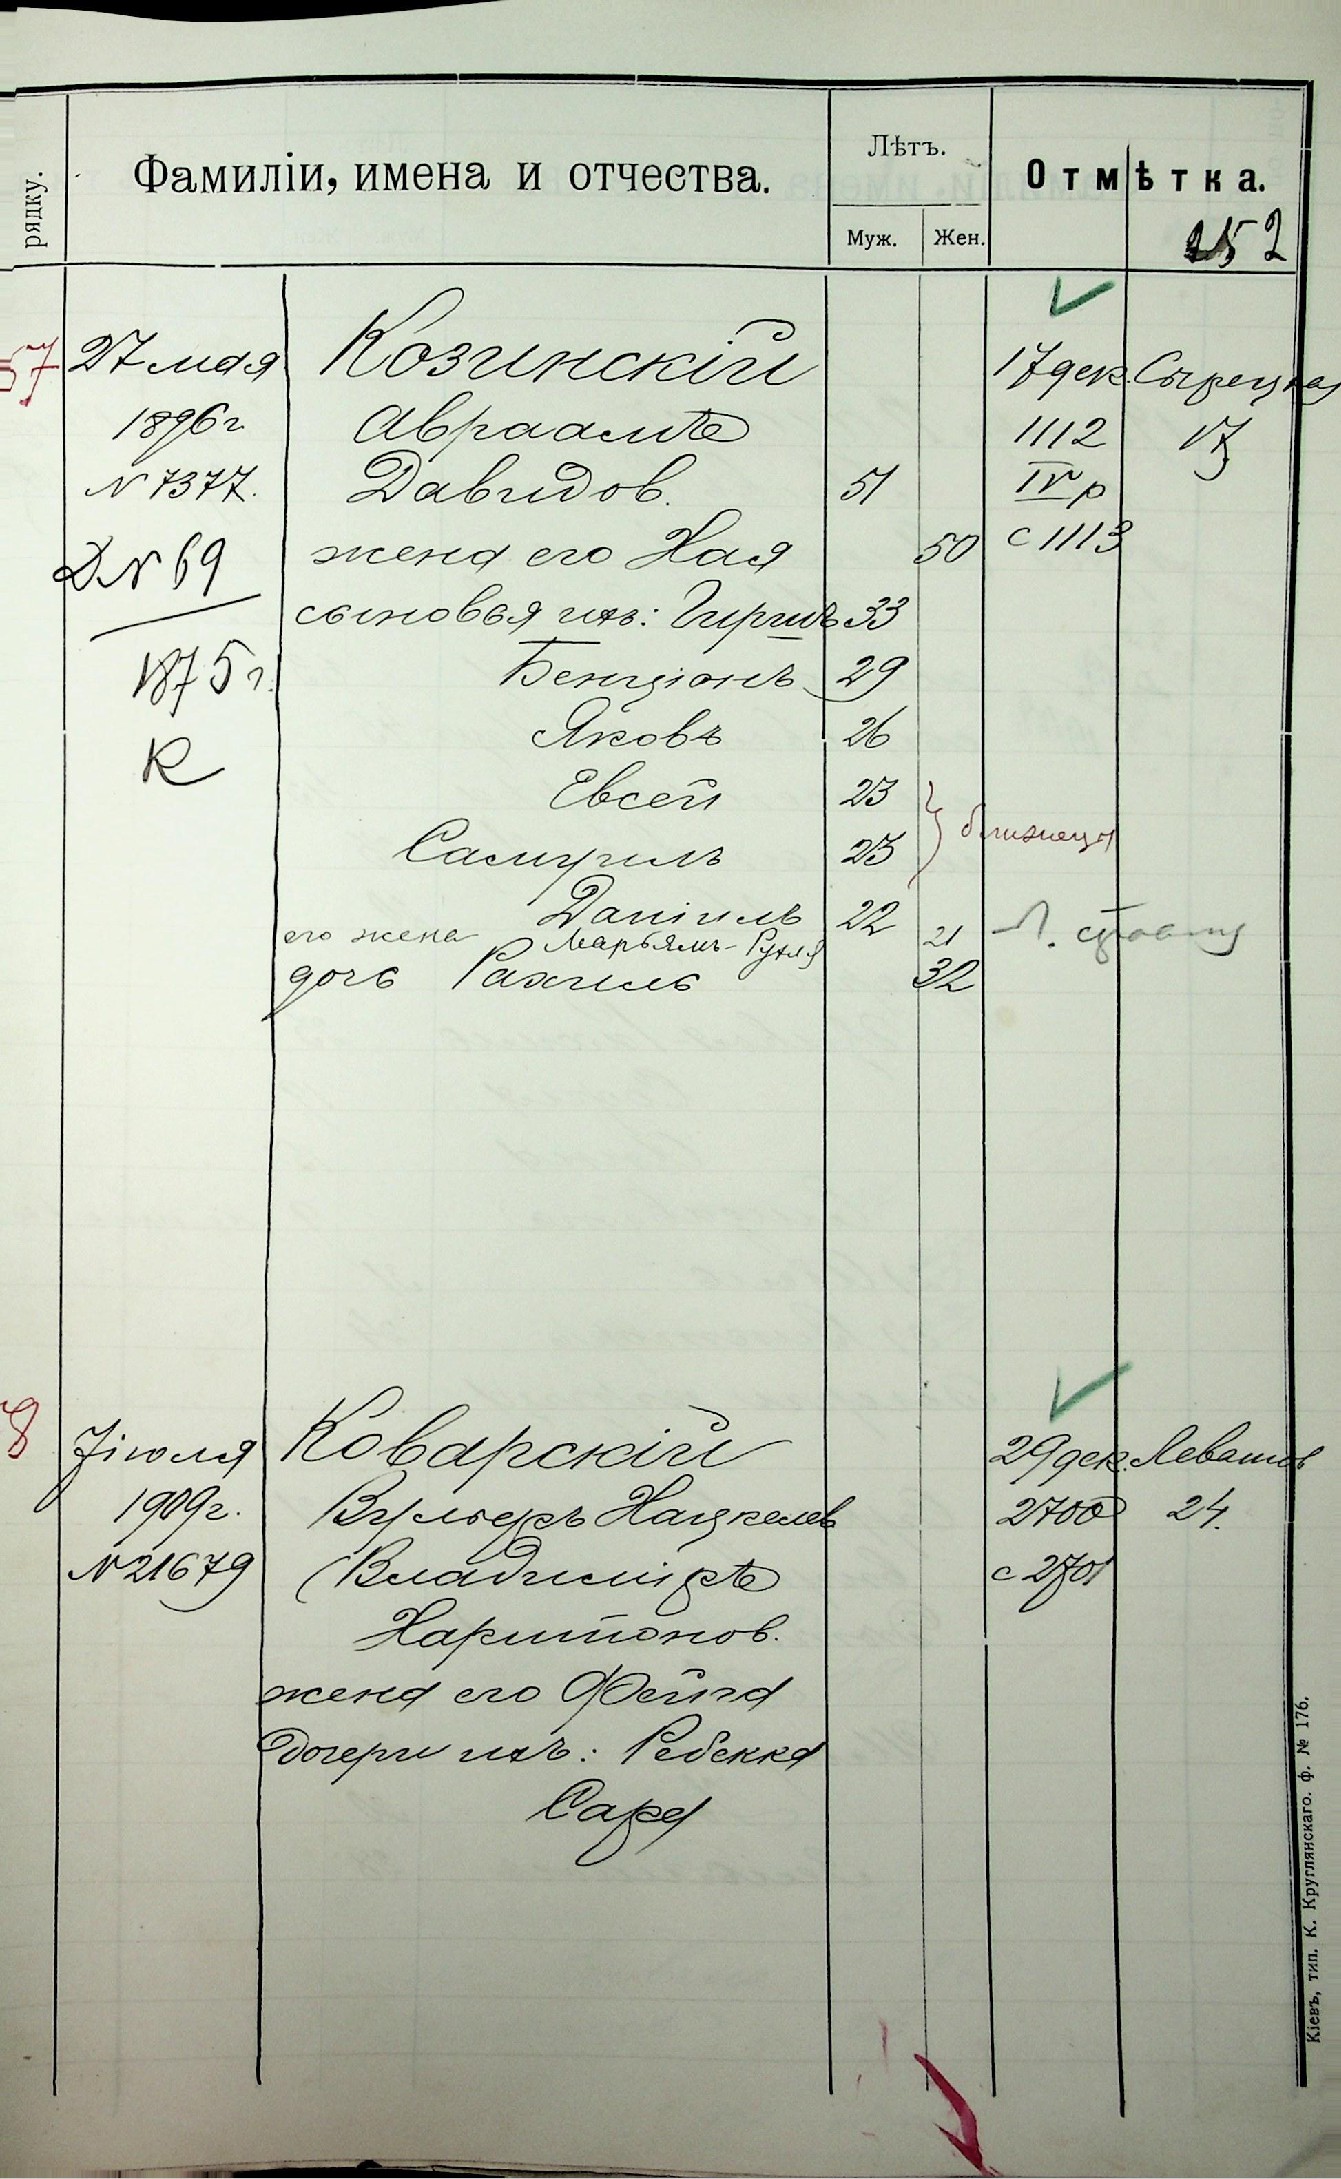 рядку.
Фамиліи, имена и отчества.
Лѣтъ.
Муж.
Жен.
Отмѣтка.
252
57
27 мая
1896 г.
№ 7377.
Д № 69
1875 г.
К
Козинскій
Авраамъ
Давидов. 51
жена его Хая 50
сыновья ихъ: Гиршъ 33
Бенціонъ 29
Яковъ 26
Евсей 23
Самуилъ 23
близнецы
Даніилъ 22
его жена Марьямъ-Рухля 21
дочь Рахиль 32
17 дек. Сырецкая
1112 17
IV р
с 1113
8
7 іюля
1909 г.
№ 21679
Коварскій
Вульфъ Хацкелев
(Владиміръ
Харитонов.
жена его Фейга
дочери ихъ: Ребекка
Сара
29 дек. Левашов
2700 24.
с 2701
Кіевъ, тип. К. Круглянскаго. ф. № 176.